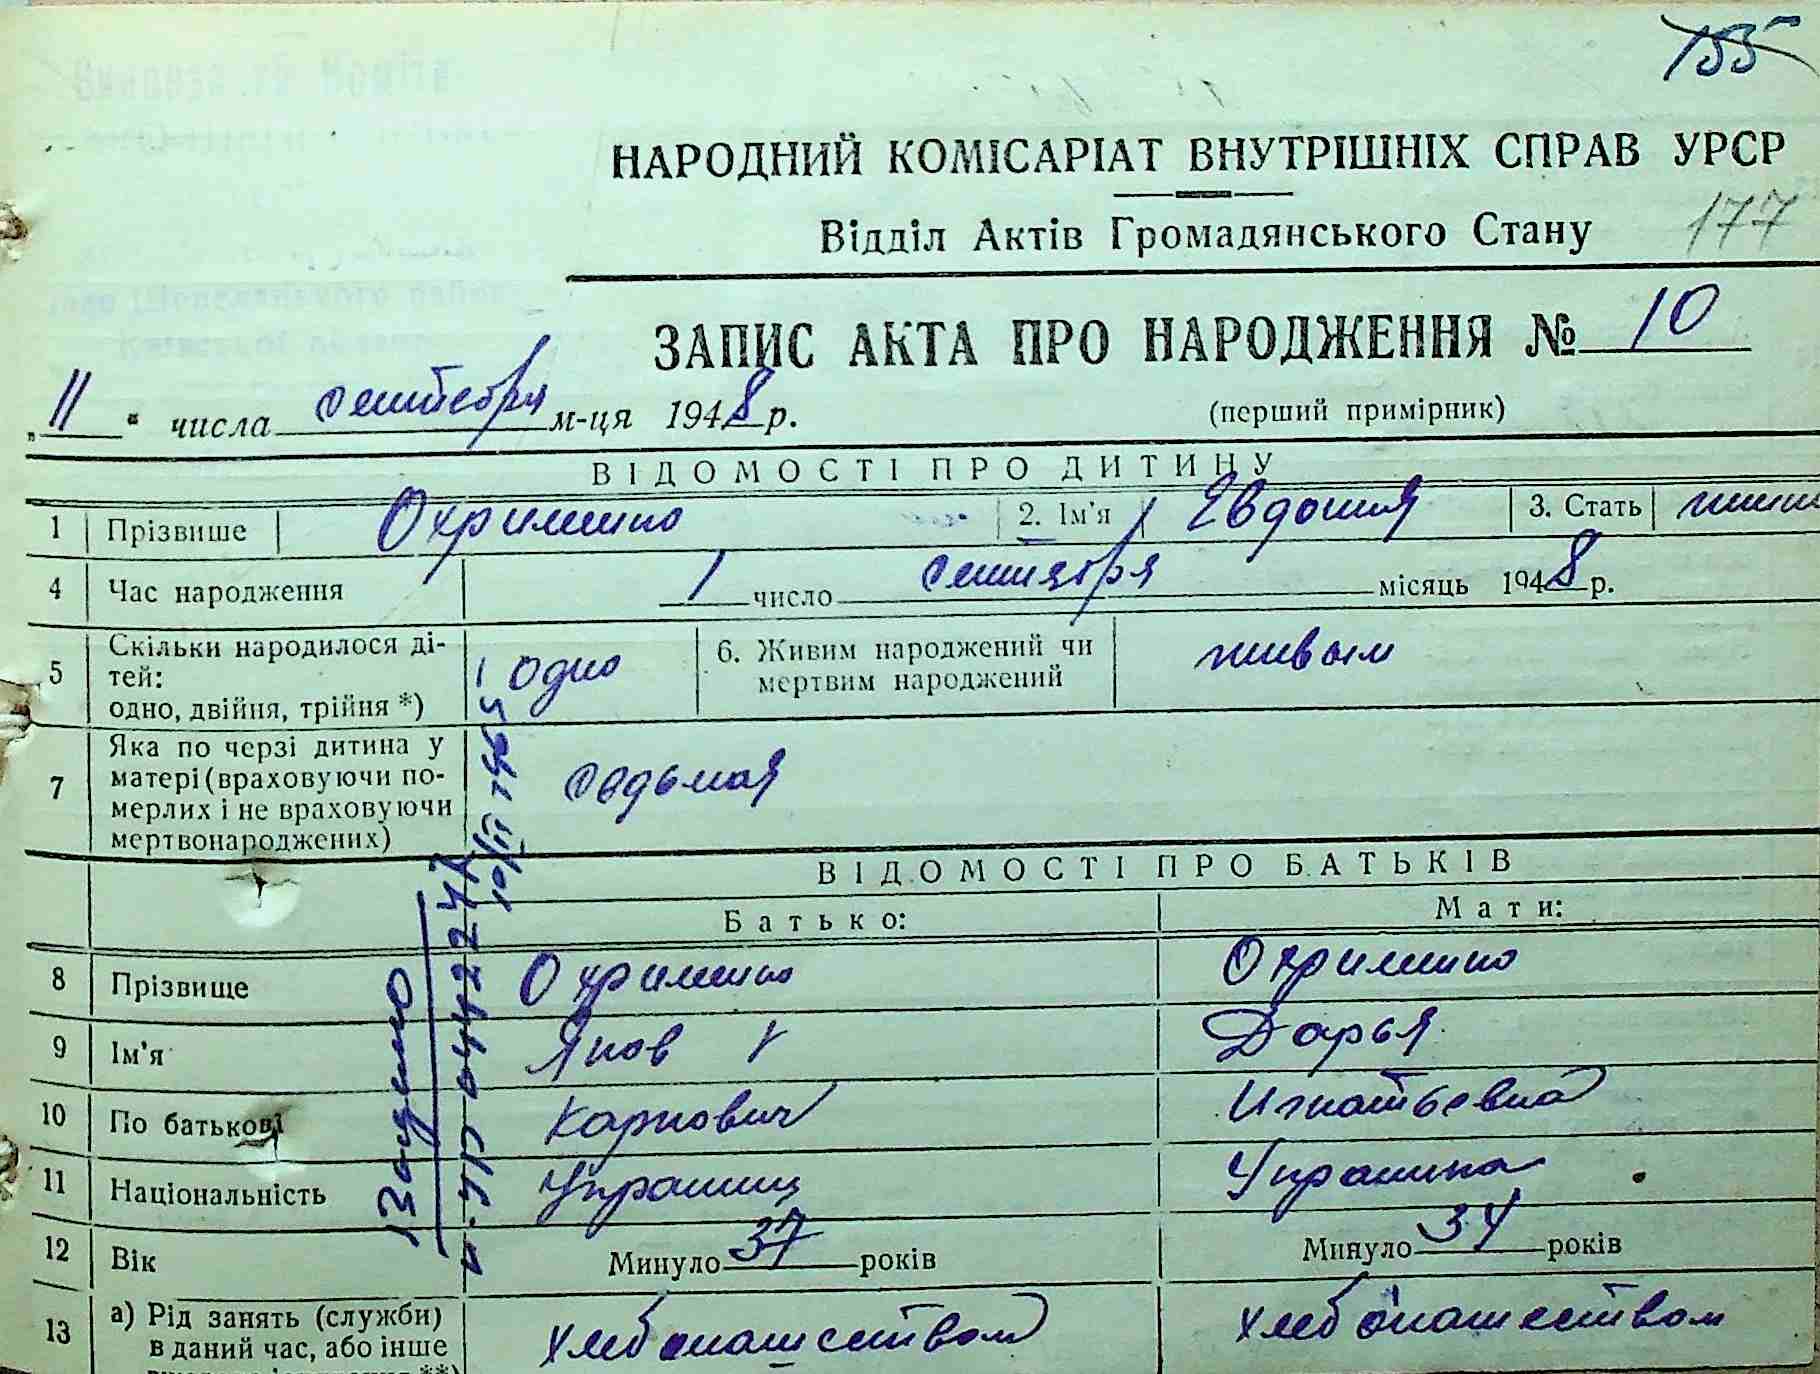 155
НАРОДНИЙ КОМІСАРІАТ ВНУТРІШНІХ СПРАВ УРСР
Відділ Актів Громадянського Стану 177
ЗАПИС АКТА ПРО НАРОДЖЕННЯ № 10
„11“ числа сентебря м-ця 1948 р. (перший примірник)
ВІДОМОСТІ ПРО ДИТИНУ
1 Прізвише Охримено 2. Ім'я Евдокия 3. Стать
4 Час народження 1 число сентебря місяць 1948 р.
5 Скільки народилося ді-
тей:
одно, двійня, трійня *) одно 6. Живим народжений чи
мертвим народжений живым
7 Яка по черзі дитина у
матері (враховуючи по-
мерлих і не враховуючи
мертвонароджених) седьмая
ВІДОМОСТІ ПРО БАТЬКІВ
Батько: Мати:
8 Прізвище Охримено Охримено
9 Ім'я Яков Дарья
10 По батькові Карпович Игнатьевна
11 Національність Украинец Украинка
12 Вік Минуло 37 років Минуло 34 років
13 а) Рід занять (служби)
в даний час, або інше хлебопашеством хлебопашеством